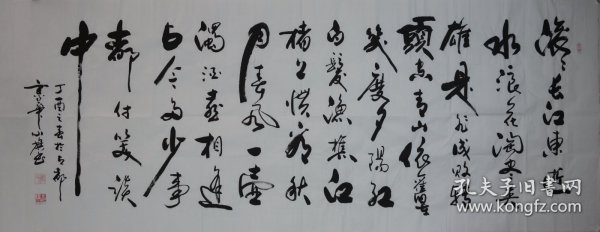 滚〻長江東逝
水浪花淘尽英
雄是非成败转
頭空青山依舊在
幾度夕陽红
白髮漁樵江
渚上慣看秋
月春风一壶
濁酒喜相逢
古今多少事
都付笑談
中
丁酉之春於古都
孔夫子旧书网
www.kongfz.com